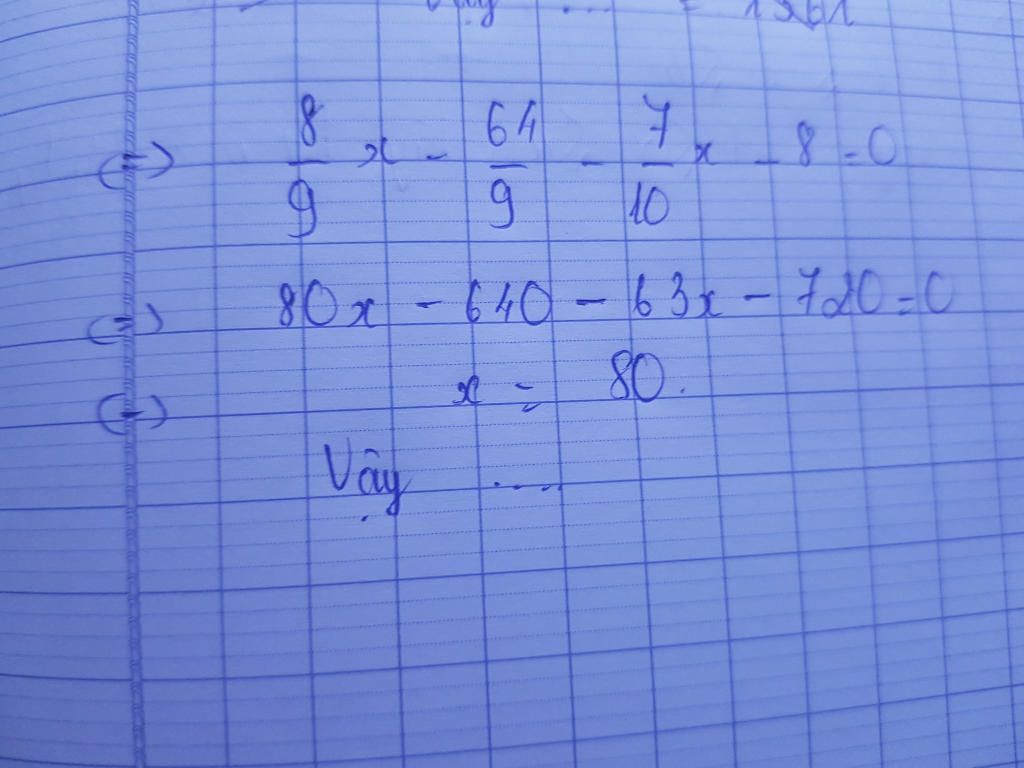 = 1261
(=) 8/9 x - 64/9 - 7/10 x - 8 = 0
(=) 80x - 640 - 63x - 720 = 0
(=) x = 80.
Vậy ....